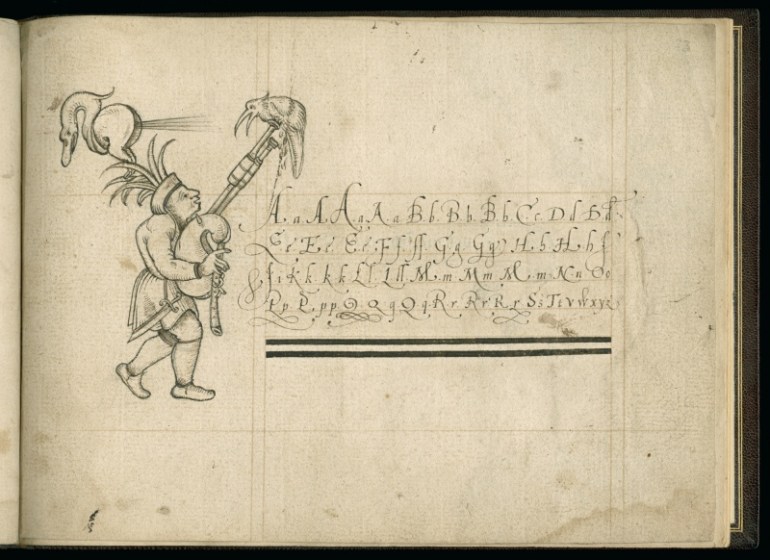 A a A A a A a B b. B b. B b. C c D d D d
E e E e E e F f ff G g G g H h H h f
f i K k. k k L l. L ll M m M m M m N n O o
P p P p p Q Q q Q q R r R r R r S s T t v w x y z